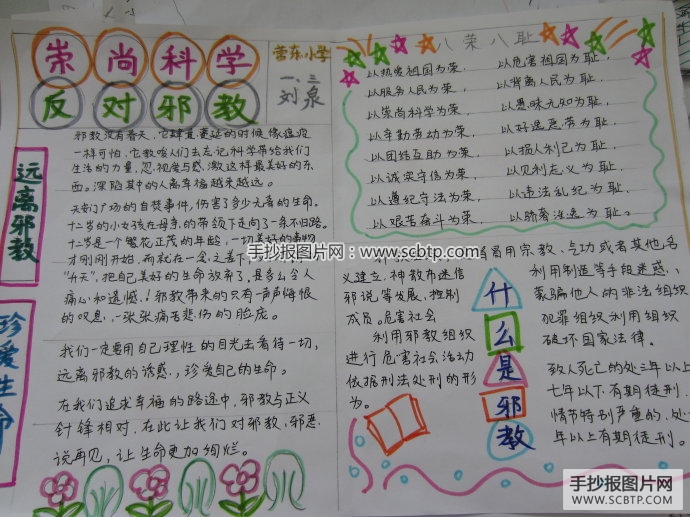 崇尚科学
反对邪教
营东小学
一、三
刘泉
远离邪教
珍爱生命
邪教没有春天,它肆意蔓延的时候像瘟疫
一样可怕,它教唆人们去忘记科学带给我们
生活的力量,忽视爱与感激这样最美好的东
西。深陷其中的人离幸福越来越远。
天安门广场的自焚事件,伤害了多少无善的生命。
十二岁的小女孩在母亲的带领下走向了一条不归路。
十二岁是一个繁花正茂的年龄,一切美好的事物
才刚刚开始,而就在一念之差下
"升天",把自己美好的生命放弃了,是多么令人
痛心和遗憾!邪教带来的只有一声声悔恨
的叹息,一张张痛苦悲伤的脸庞。
我们一定要用自己理性的目光去看待一切,
远离邪教的诱惑,珍爱自己的生命。
在我们追求幸福的路途中,邪教与正义
针锋相对,在此让我们对邪教、邪恶
说再见,让生命更加绚烂。
八荣八耻
以热爱祖国为荣,以危害祖国为耻,
以服务人民为荣,以背离人民为耻,
以崇尚科学为荣,以愚昧无知为耻,
以辛勤劳动为荣,以好逸恶劳为耻,
以团结互助为荣,以损人利己为耻,
以诚实守信为荣,以见利忘义为耻,
以遵纪守法为荣,以违法乱纪为耻,
以艰苦奋斗为荣,以骄奢淫逸为耻。
什么是邪教
冒用宗教、气功或者其他名
义建立,神教布迷信
邪说等发展、控制
成员,危害社会
利用邪教组织
进行危害社会活动
依据刑法处刑的形
为。
利用制造等手段迷惑、
蒙骗他人的非法组织
犯罪组织利用组织
破坏国家法律。
致人死亡的处三年以上
七年以下有期徒刑
情节特别严重的,处
年以上有期徒刑。
手抄报图片网:www.scbtp.com
手抄报图片网
WWW.SCBTP.COM